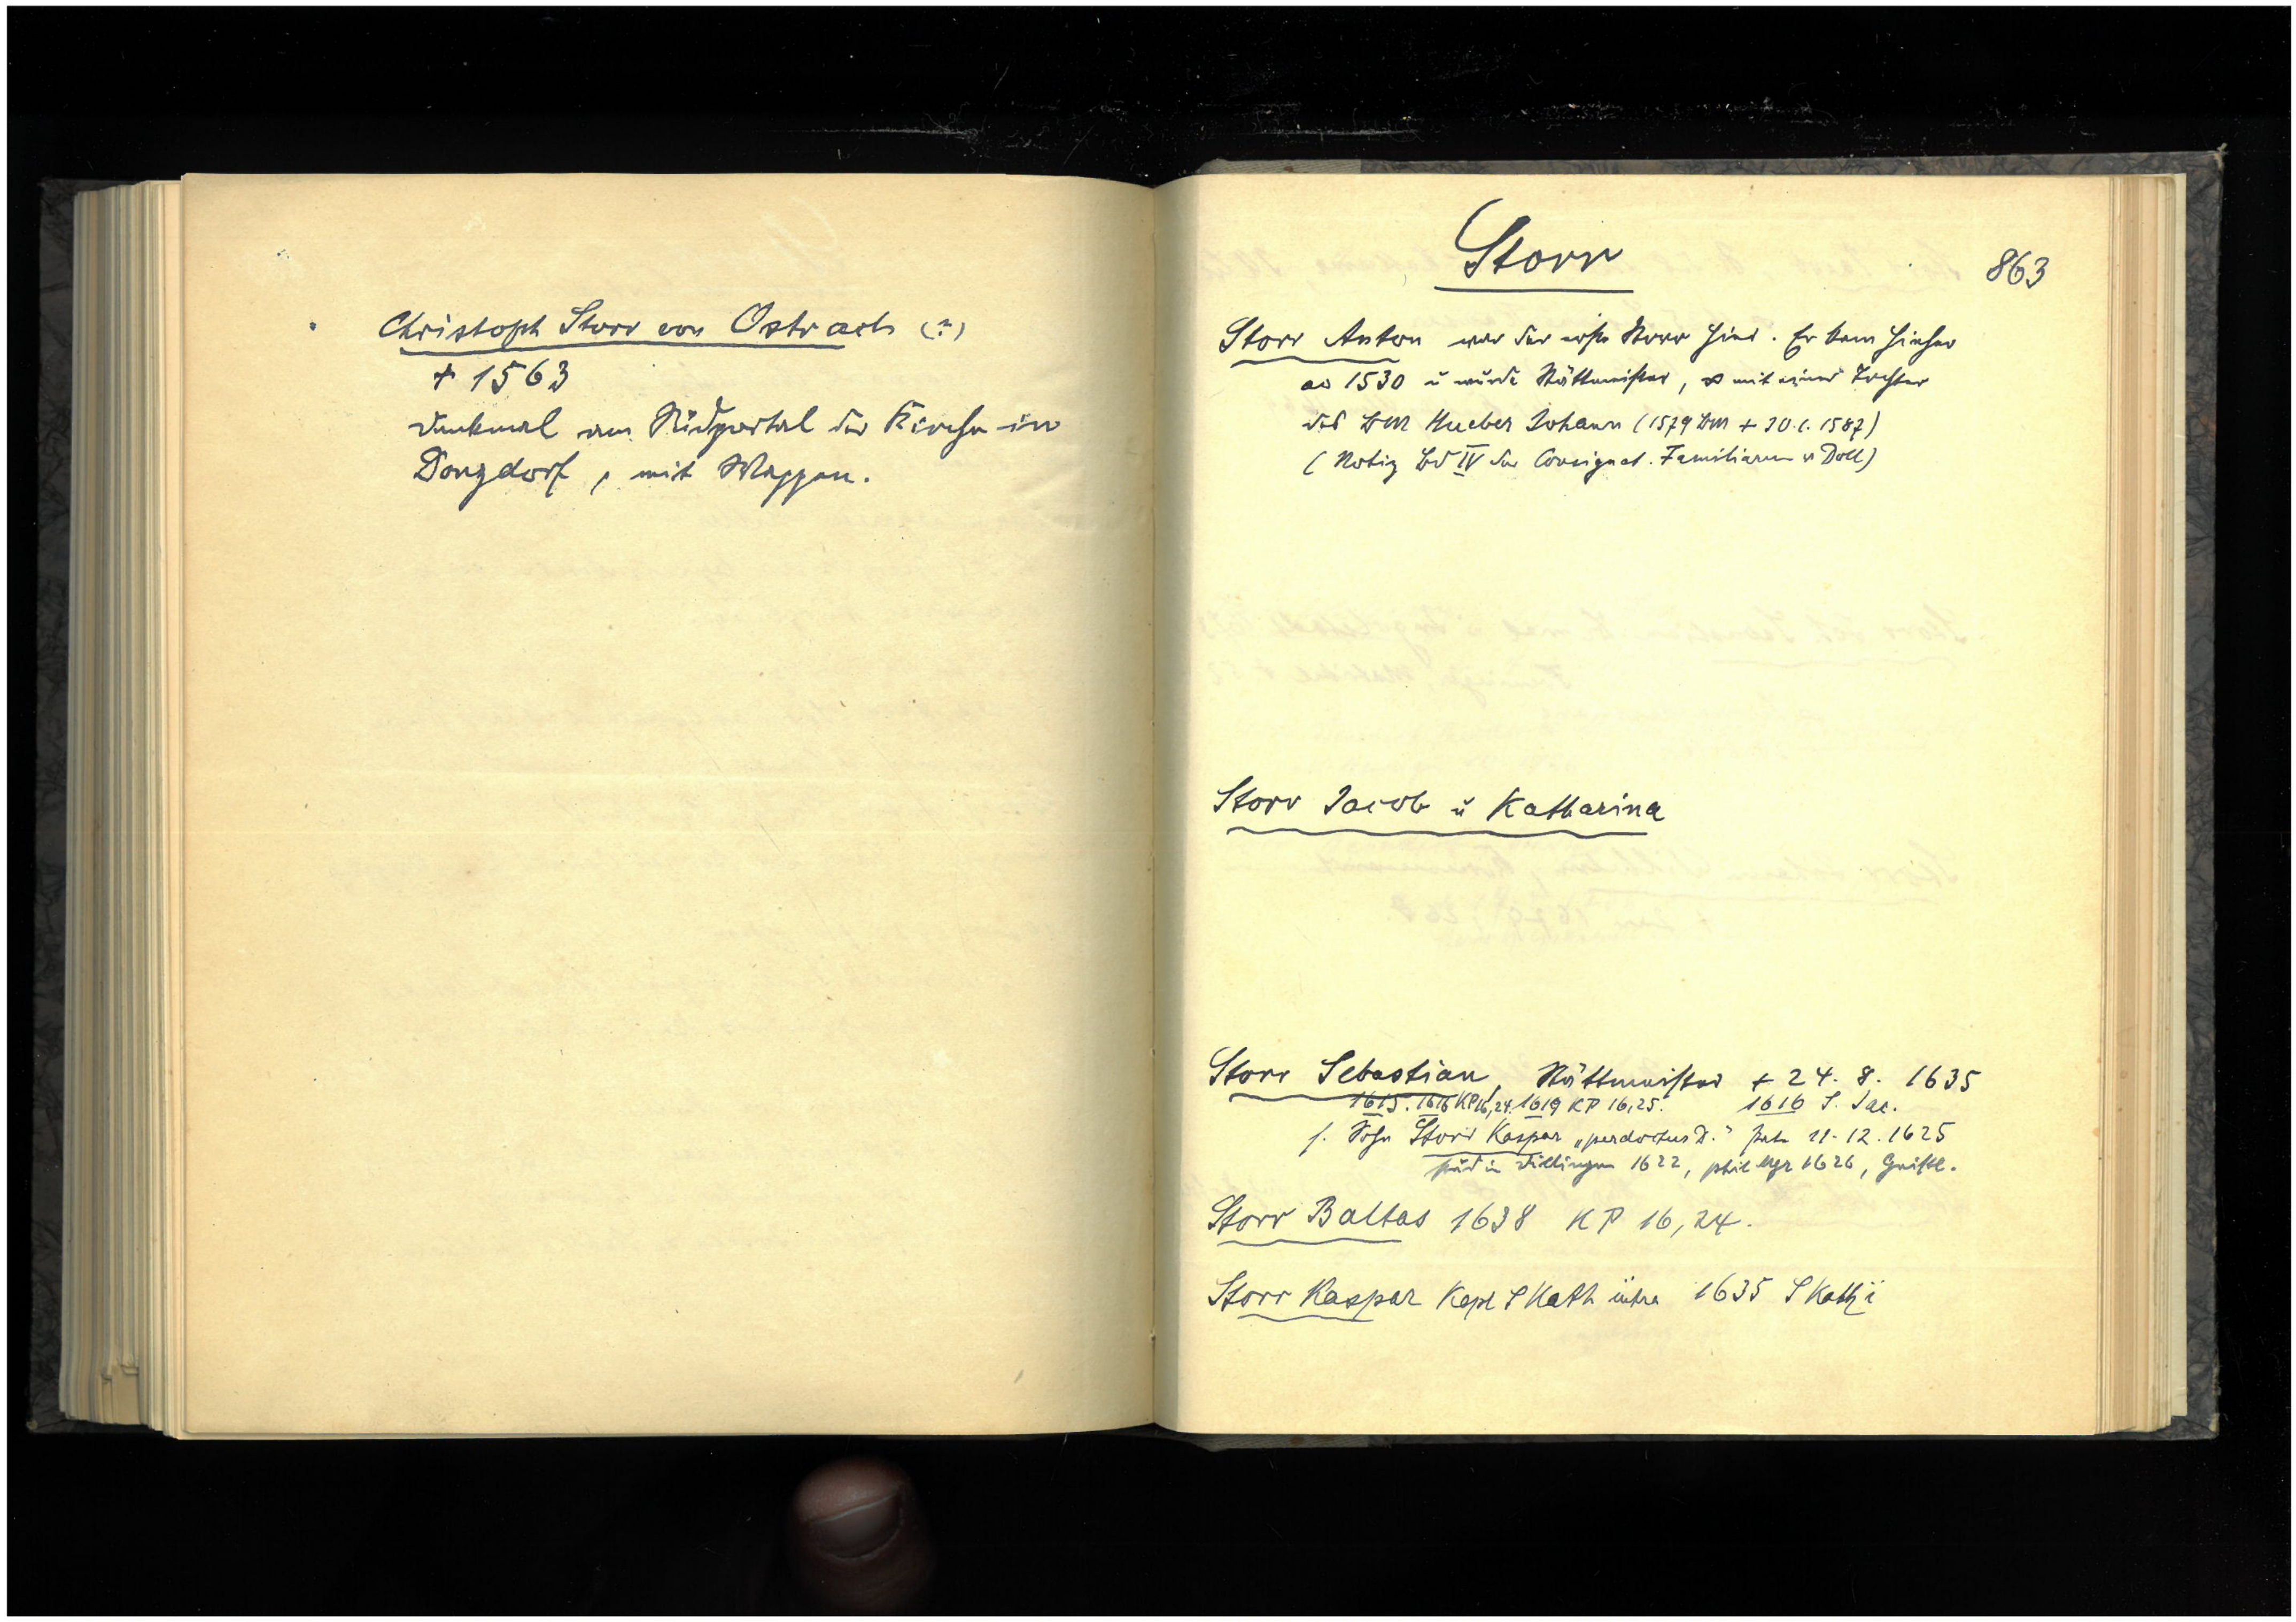 Christoph Storr von Ostrach (?)
+ 1563
Denkmal am Südportal der Kirche in
Donzdorf, mit Wappen.
Storr
863
Storr Anton war der erste Storr hier. Er kam hieher
ao 1530 u wurde Stättmeister, ∞ mit einer Tochter
des BM Hueber Johann (1579 BM + 30.1.1587)
(Notiz Bd IV der Consignat. Familiarum v Doll)
Storr Jacob u Katharina
Storr Sebastian, Stättmeister + 24. 8. 1635
1615. 1616 KP 16,24. 1619 KP 16,25. 1616 S. Jac.
s. Sohn Storr Kaspar „perdoctus D." 11.12.1625
stud in Dillingen 1622, phil Mgr 1626, Geistl.
Storr Baltas 1638 KP 16,24.
Storr Kaspar Kapl S Kath 1635 S Kath